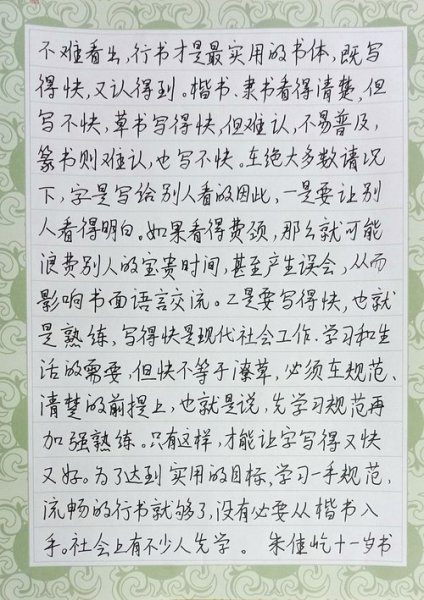 不难看出,行书才是最实用的书体,既写
得快,又认得到。楷书、隶书看得清楚,但
写不快,草书写得快,但难认,不易普及,
篆书则难认,也写不快。在绝大多数请况
下,字是写给别人看的因此,一是要让别
人看得明白。如果看得费颈,那么就可能
浪费别人的宝贵时间,甚至产生误会,从而
影响书面语言交流。二是要写得快,也就
是熟练,写得快是现代社会工作.学习和生
活的需要,但快不等于潦草,必须在规范、
清楚的前提上,也就是说,先学习规范再
加强熟练。只有这样,才能让字写得又快
又好。为了达到实用的目标,学习一手规范,
流畅的行书就够了,没有必要从楷书入
手。社会上有不少人先学。 朱佳屹十一岁书